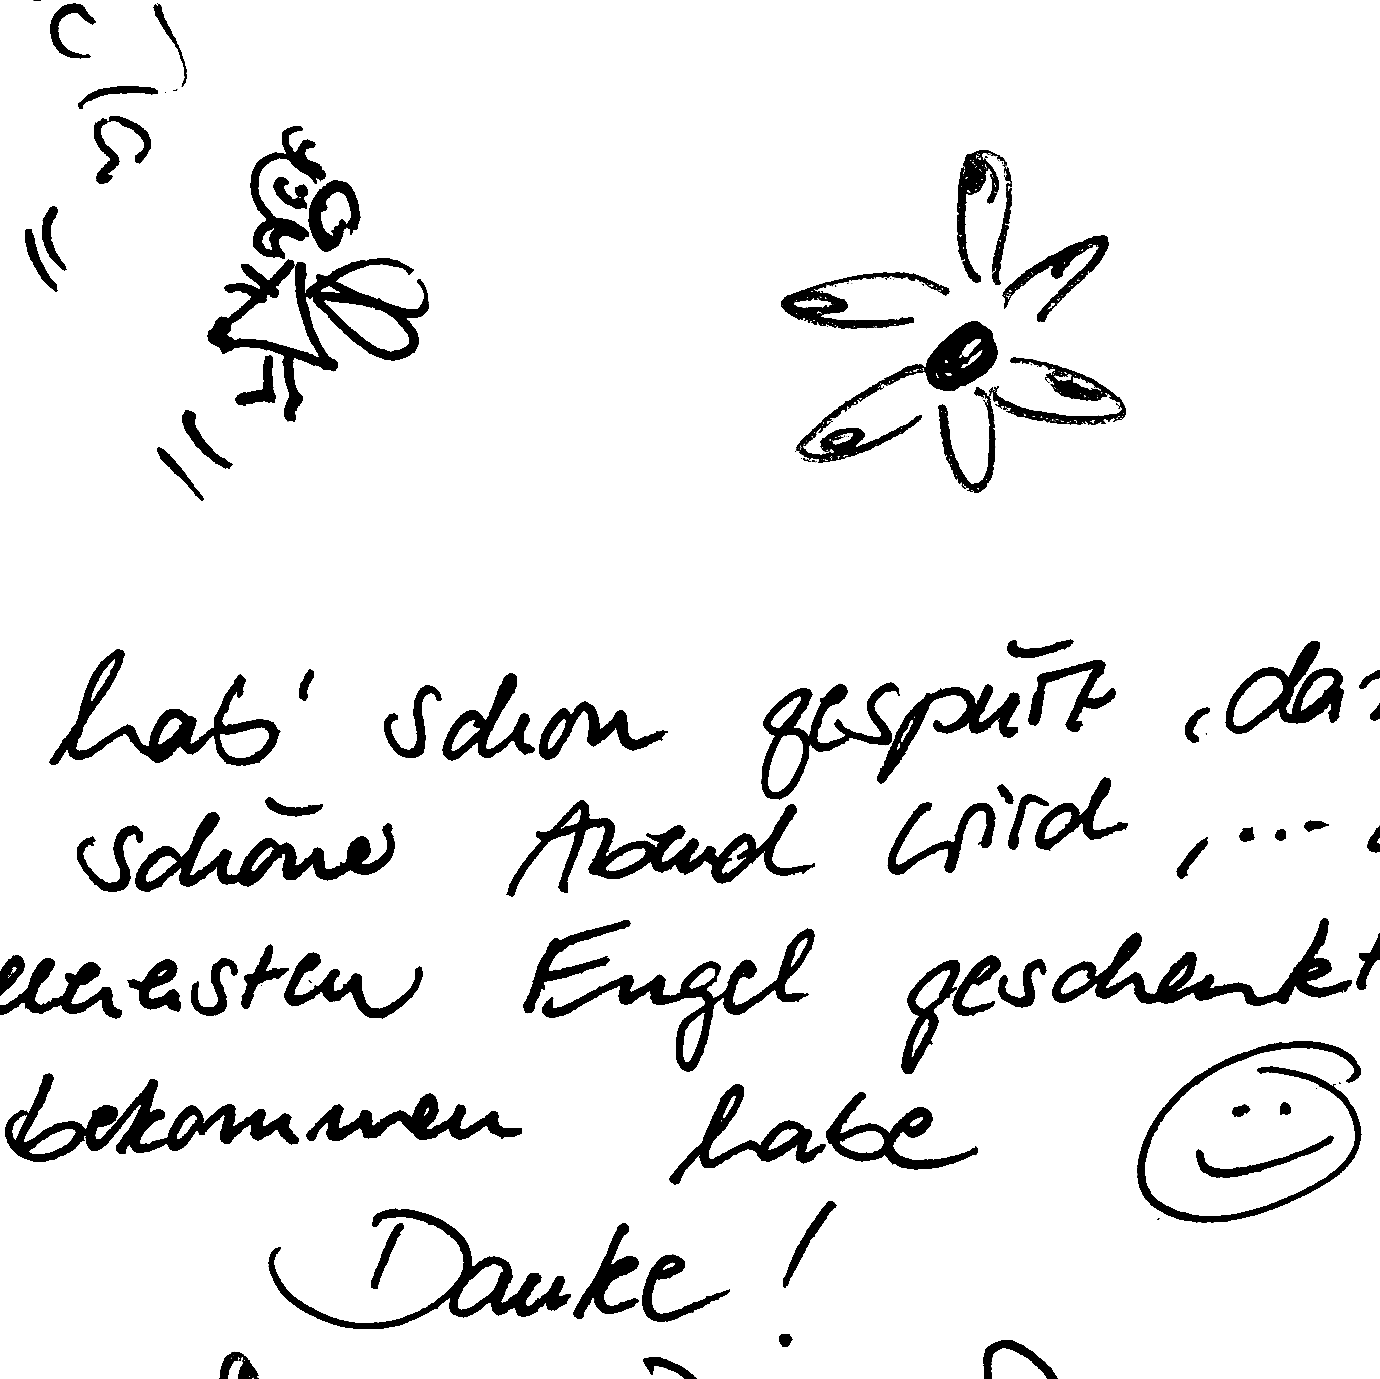 hab' schon gespürt, da
schöne Abend wird, ...
Engel geschenkt
bekommen habe
Danke!